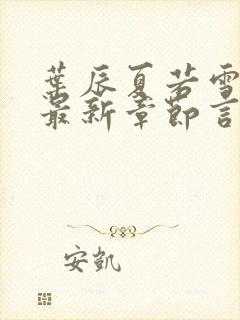 葉辰夏若雪
最新章節言
安凱